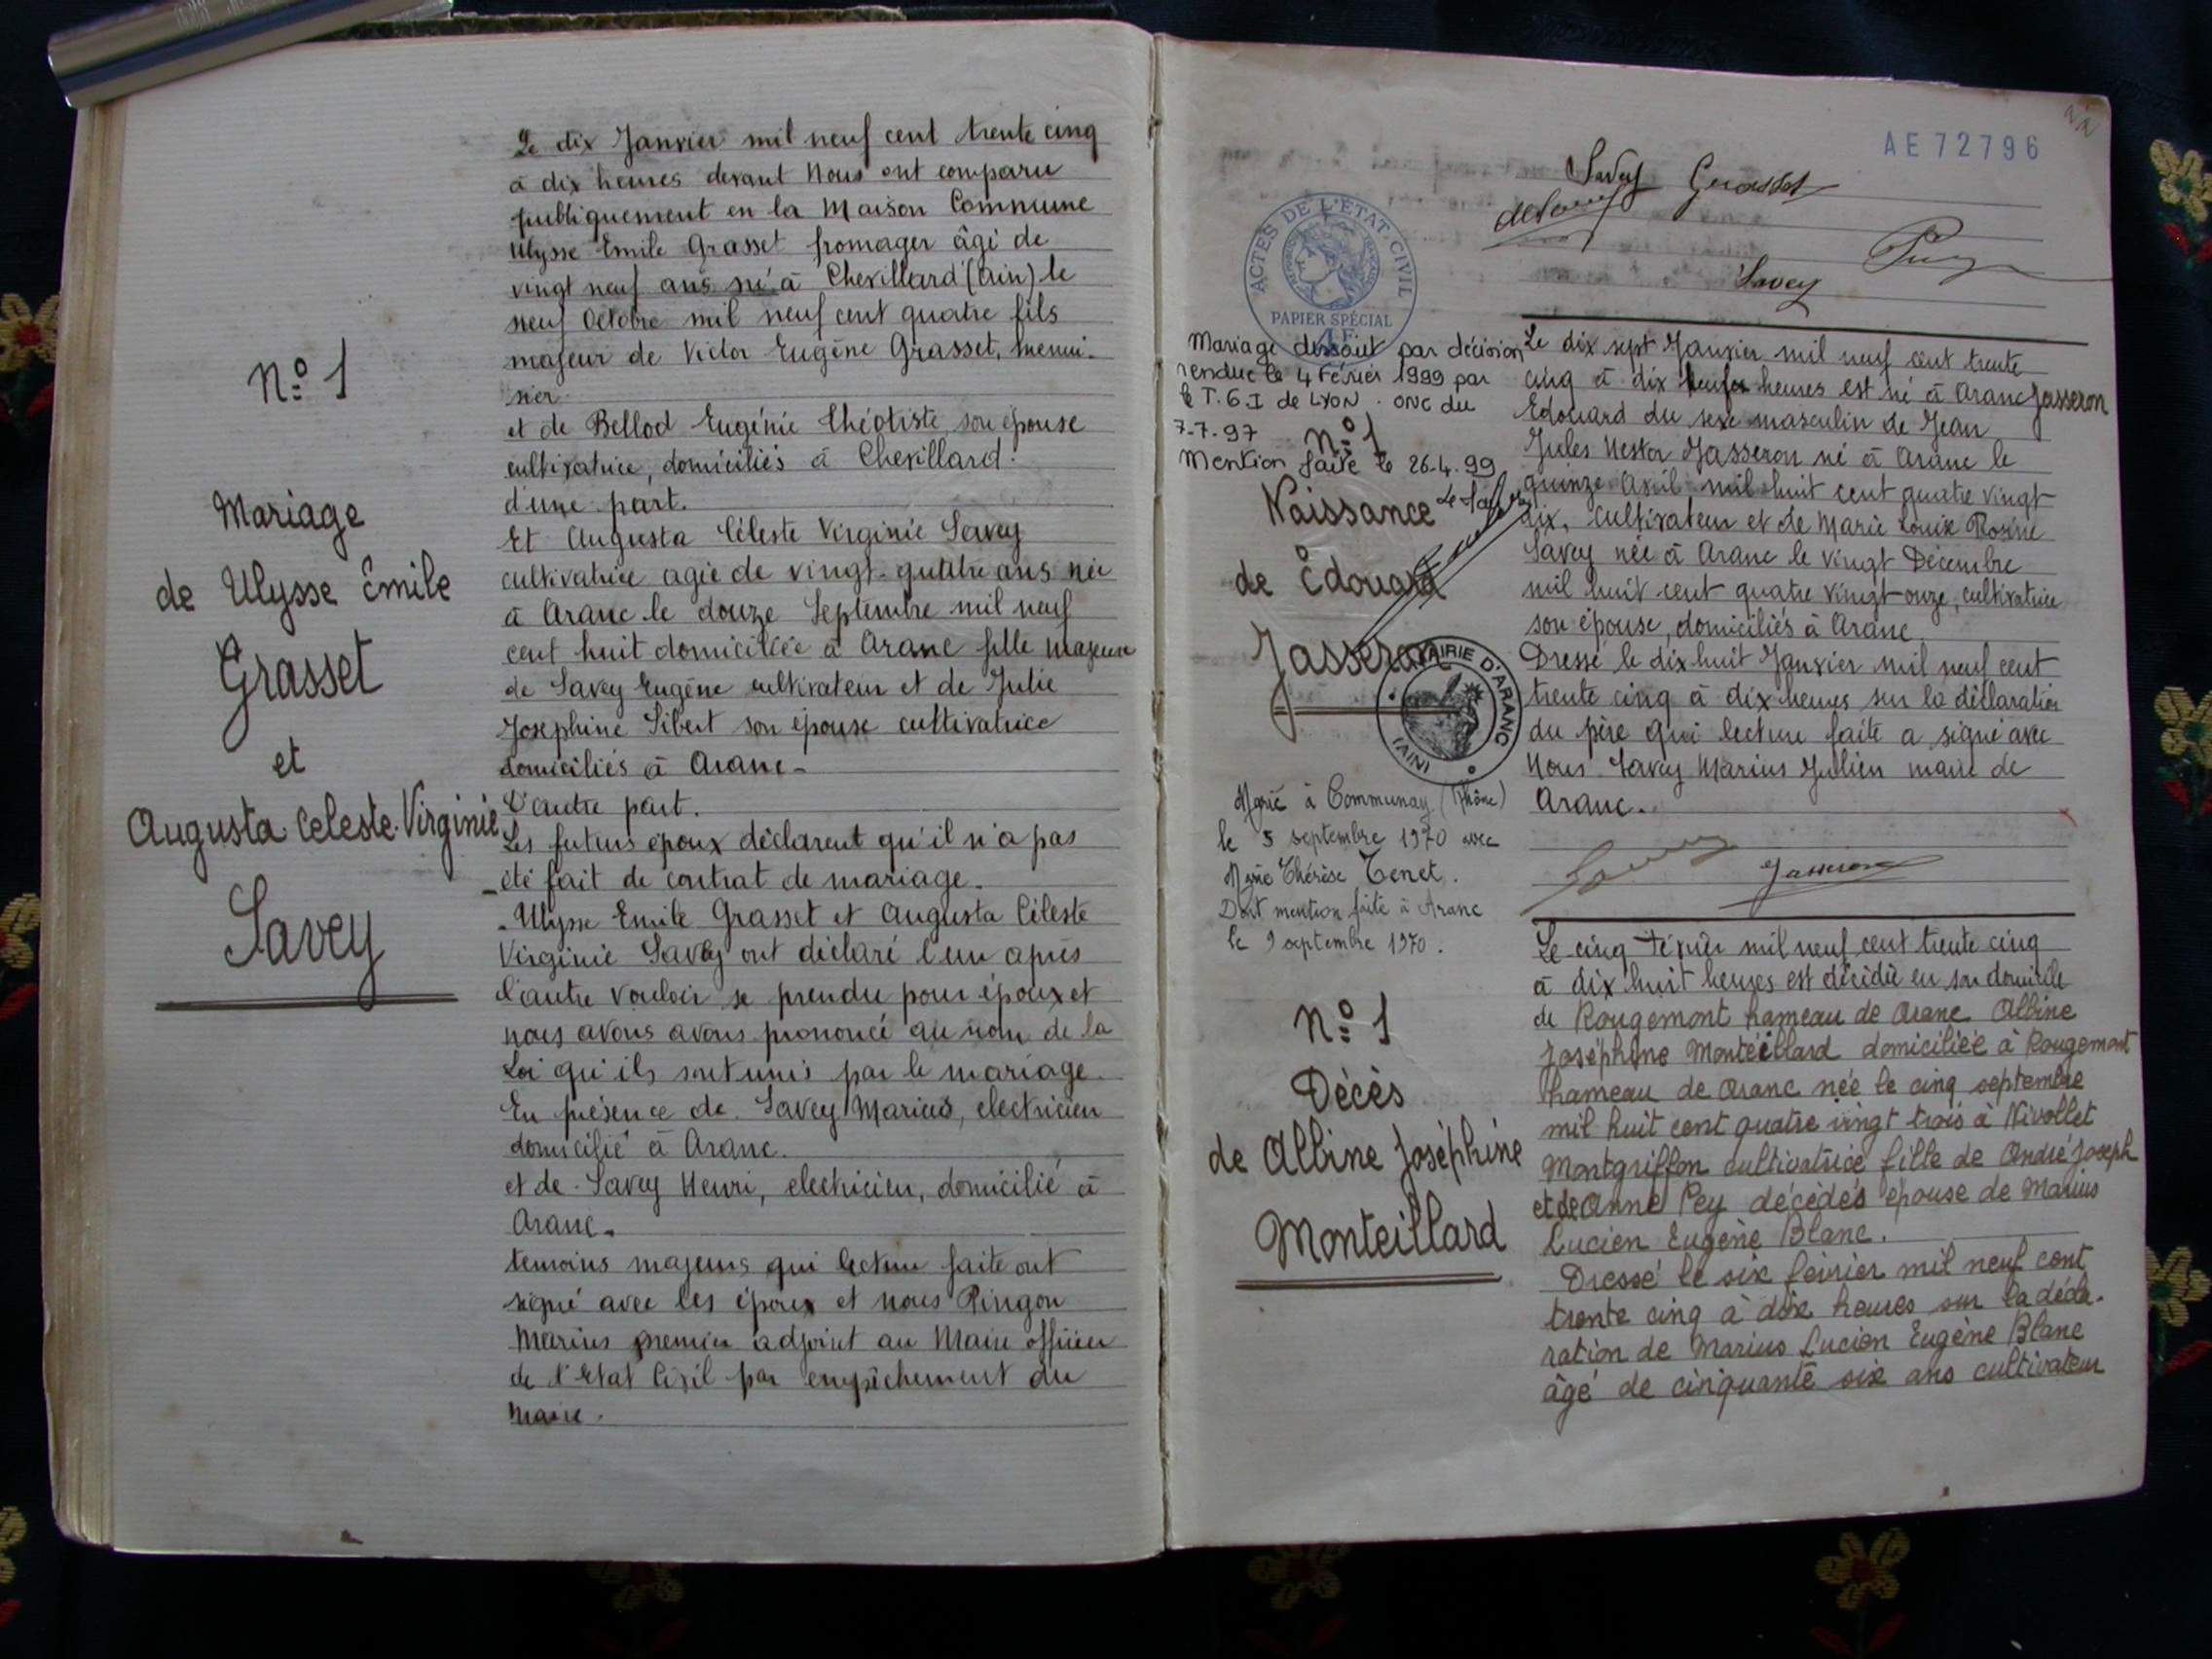 N:º 1
Mariage
de Ulysse Émile
Grasset
et
Augusta Celeste Virginie
Savey
Le dix Janvier mil neuf cent trente cinq
à dix heures devant Nous ont comparu
publiquement en la Maison Commune
Ulysse Emile Grasset fromager âgé de
vingt neuf ans né à Chevillard (Ain) le
neuf Octobre mil neuf cent quatre fils
majeur de Victor Eugène Grasset, menui-
sier
et de Bellod Eugénie Théotiste son épouse
cultivatrice, domiciliés à Chevillard.
d'une part.
Et Augusta Céleste Virginie Savey
cultivatrice agée de vingt-quatre ans née
à Aranc le douze Septembre mil neuf
cent huit domiciliée à Aranc fille majeure
de Savey Eugène cultivateur et de Julie
Josephine Sibert son épouse cultivatrice
domiciliés à Aranc-
D'autre part.
Les futurs époux déclarent qu'il n'a pas
été fait de contrat de mariage.
- Ulysse Emile Grasset et Augusta Céleste
Virginie Savey ont déclaré l'un après
l'autre vouloir se prendre pour époux et
nous avons avons prononcé au nom de la
Loi qu'ils sont unis par le mariage.
En présence de Savey Marius, electricien
domicilié à Aranc.
et de Savey Henri, electricien, domicilié à
Aranc.
temoins majeurs qui lecture faite ont
signé avec les époux et nous Pingon
Marius premier adjoint au Maire officier
de l'Etat Civil par empêchement du
Maire.
AE72796
Savey Grasset
Savey
ACTES DE L'ÉTAT CIVIL
PAPIER SPÉCIAL
Mariage dissout par décision
rendue le 4 Février 1999 par
le T.G.I de LYON. ONC du
7-7-97
Mention faite le 26-4-99
N:º 1
Naissance
de Édouard
Jasseron
MAIRIE D'ARANC
(AIN)
Marié à Communay (Rhône)
le 5 septembre 1970 avec
Marie Thérèse Tenet.
Dont mention faite à Aranc
le 9 septembre 1970.
Le dix sept Janvier mil neuf cent trente
cinq à dix heures est né à Aranc Jasseron
Edouard du sexe masculin de Jean
Jules Nestor Jasseron né à Aranc le
quinze Avril mil huit cent quatre vingt
dix, cultivateur et de Marie Louise Rosine
Savey née à Aranc le vingt Décembre
mil huit cent quatre vingt onze, cultivatrice
son épouse, domiciliés à Aranc.
Dressé le dix huit Janvier mil neuf cent
trente cinq à dix heures sur la déclaration
du père qui lecture faite a signé avec
Nous Savey Marius Julien maire de
Aranc.
Jasseron
N:º 1
Décès
de Albine Joséphine
Monteillard
Le cinq Février mil neuf cent trente cinq
à dix huit heures est décédée en son domicile
de Rougemont hameau de Aranc Albine
Joséphine Monteillard domiciliée à Rougemont
hameau de Aranc née le cinq septembre
mil huit cent quatre vingt trois à Nivollet
Montgriffon cultivatrice fille de André Joseph
et de Anne Pey décédés épouse de Marius
Lucien Eugène Blanc.
Dressé le six février mil neuf cent
trente cinq à dix heures sur la décla-
ration de Marius Lucien Eugène Blanc
âgé de cinquante six ans cultivateur